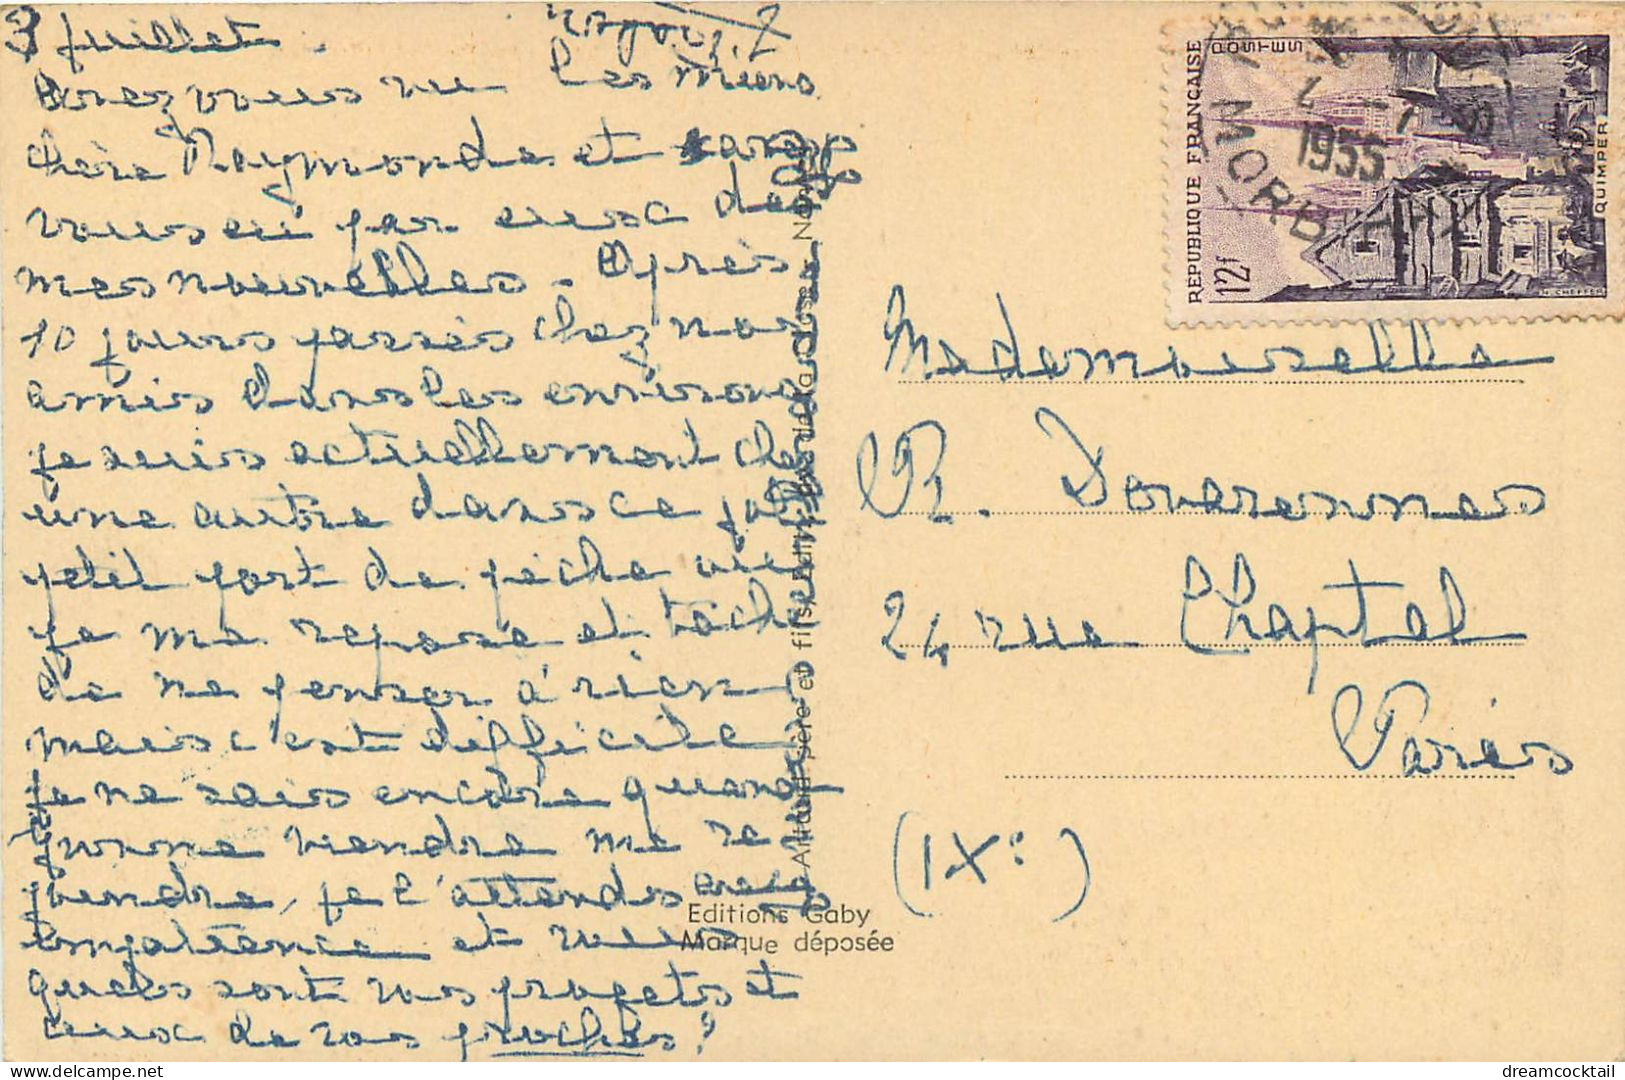 3 juillet.
Avez vous vu les Miens
chère Raymonde et avez
vous eu par eux de
mes nouvelles. Après
10 jours passés chez nos
amis dans les environs
je suis actuellement chez
une autre dans ce joli
petit port de pêche où
je me repose et tâche
de ne penser à rien
mais c'est difficile
je ne sais encore quand
Yvonne viendra me re
joindre, je l'attends avec
impatience et vous
quels sont vos projets et
ceux de vos proches?
Artaud père et fils
Editions Gaby
Marque déposée
REPUBLIQUE FRANÇAISE
POSTES
12F
QUIMPER
MORBIHAN
1955
Mademoiselle
R. Douarennes
24 rue Chaptal
Paris
(IXe)
dreamcocktail